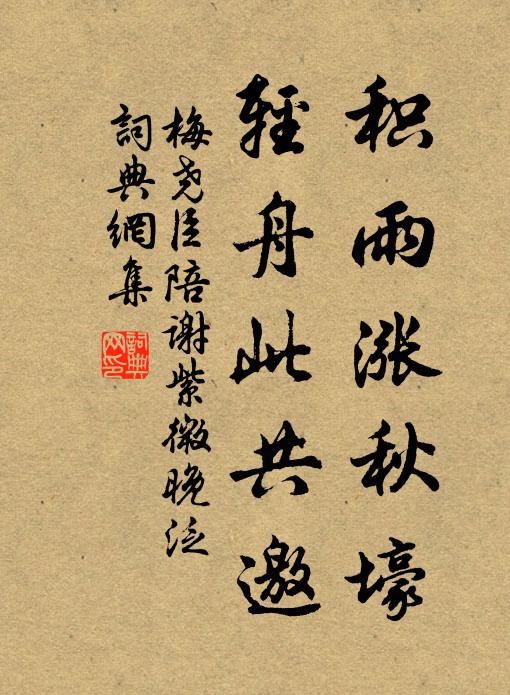 积雨涨秋壕
輕舟此共邀
梅尧臣陪谢紫微晚泛
詞典網集
詞典網印